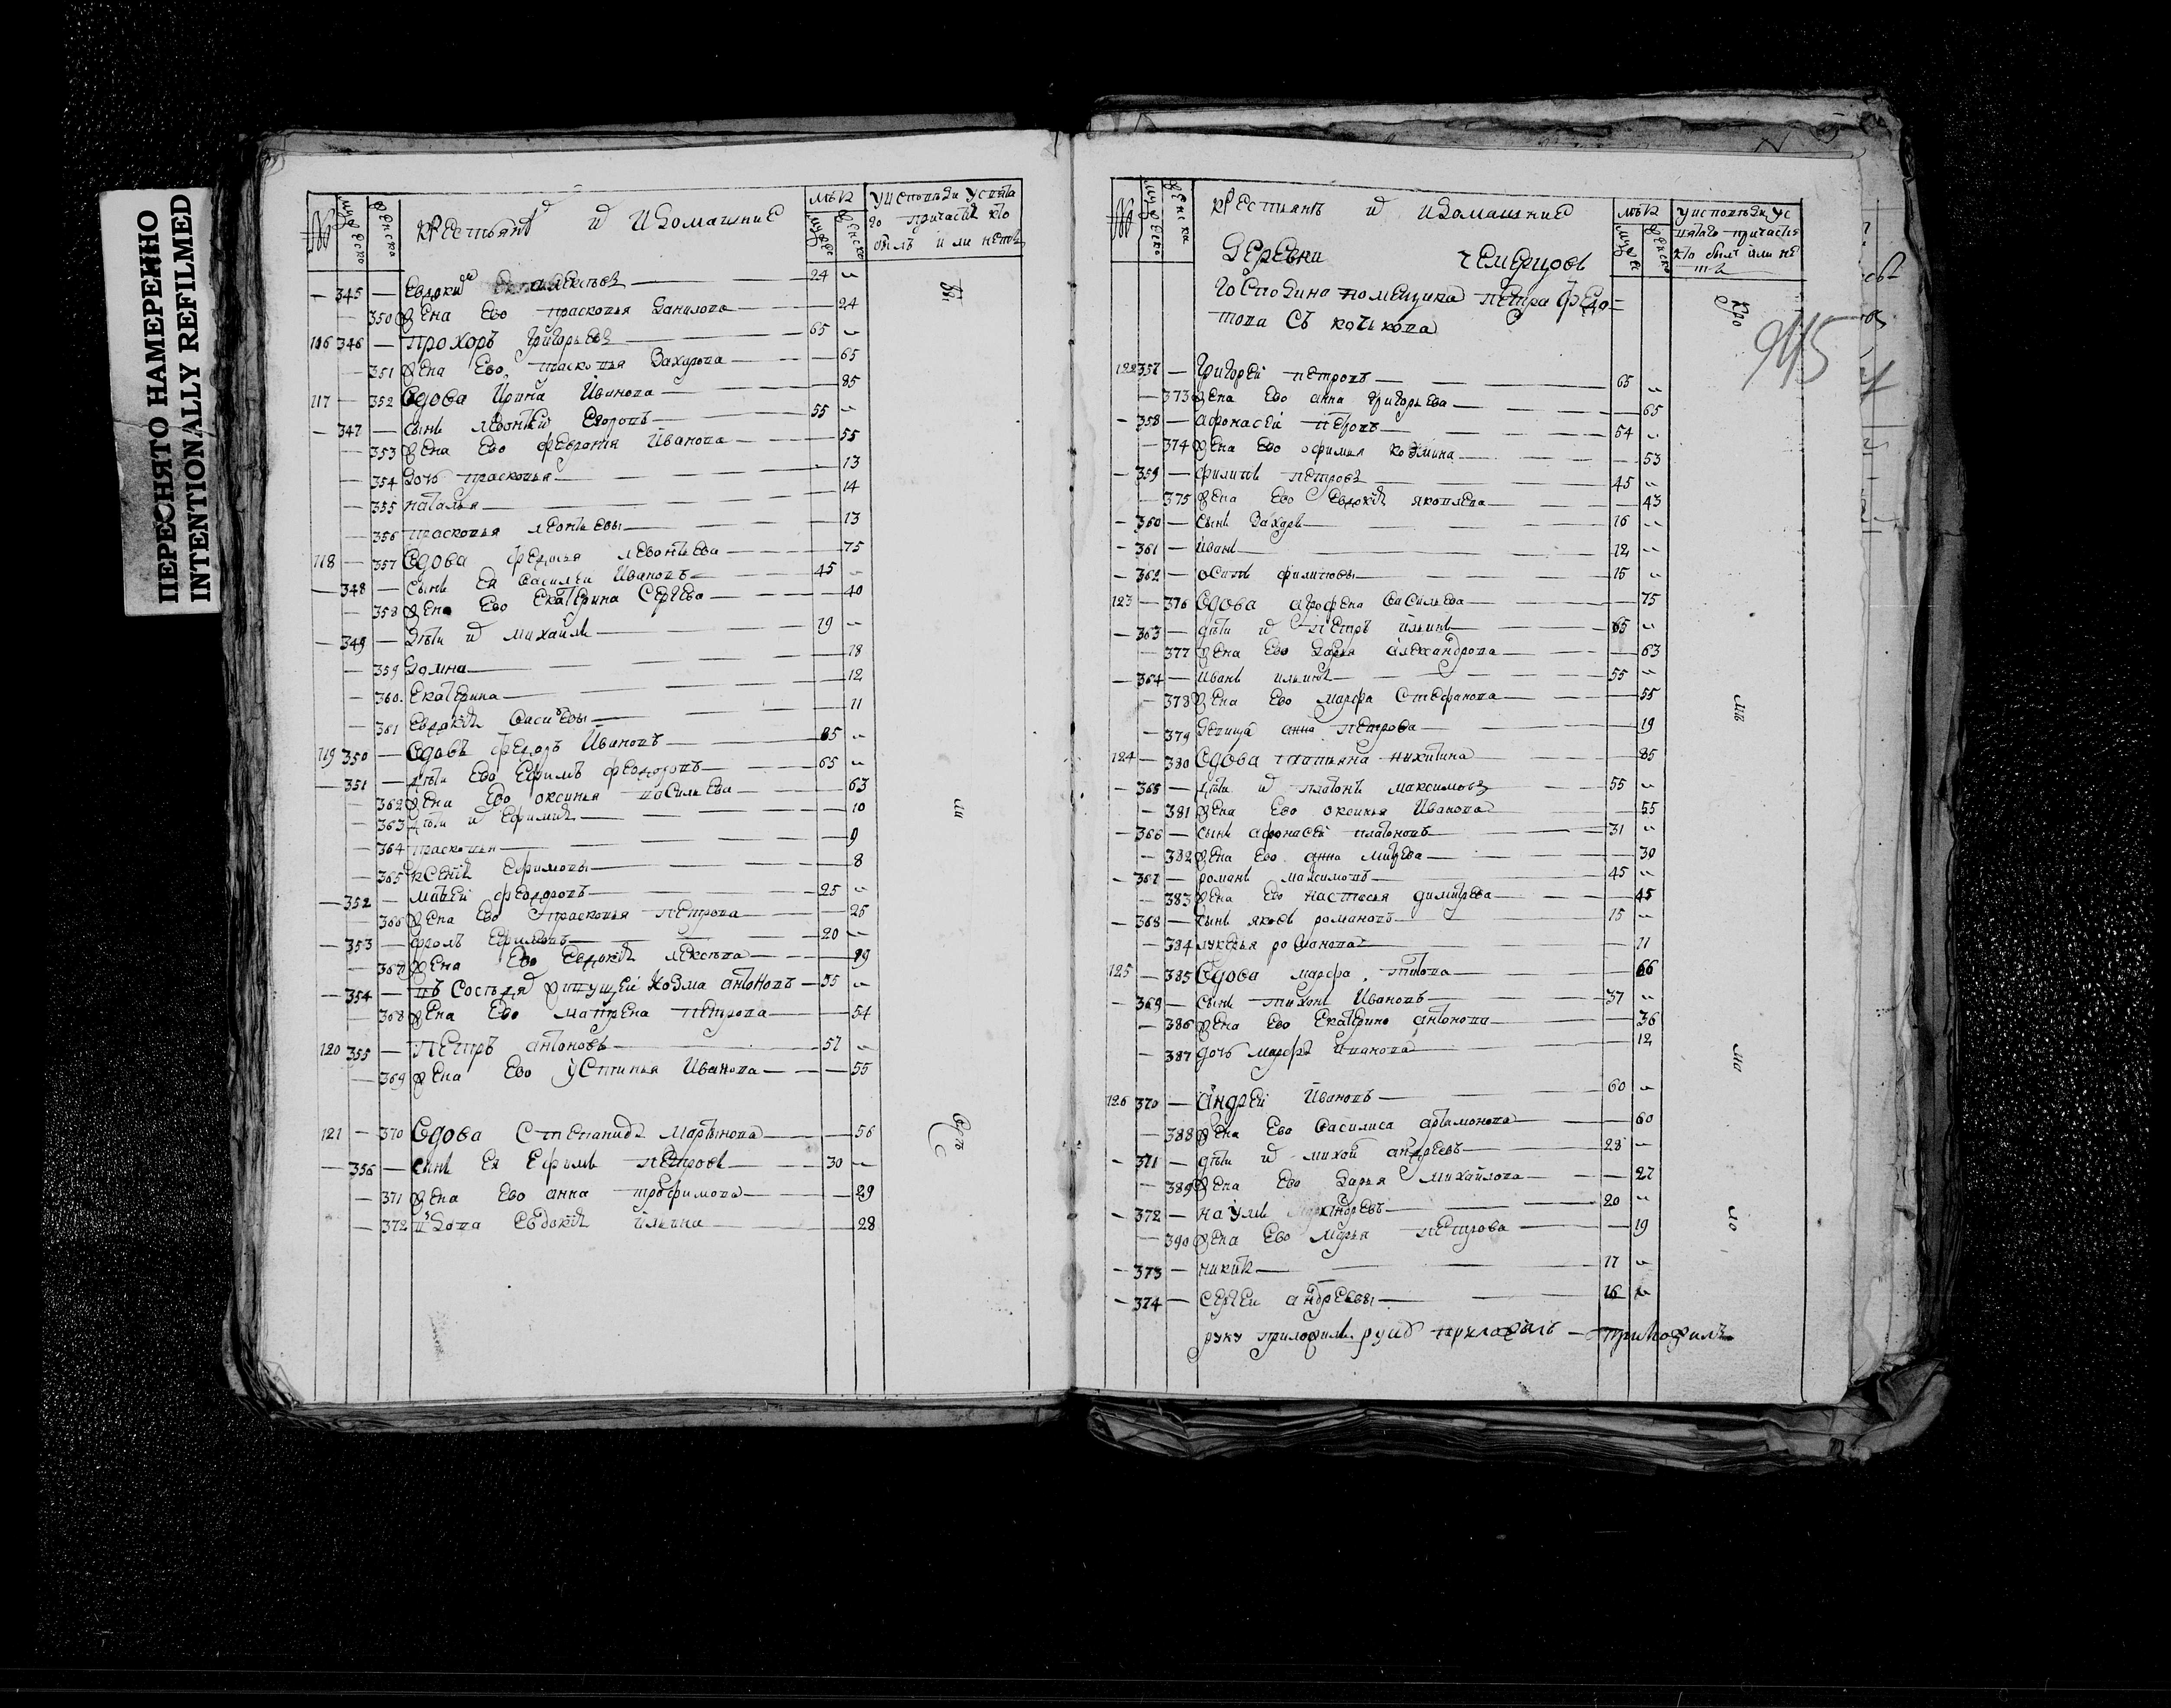 ПЕРЕСНЯТО НАМЕРЕННО
INTENTIONALLY REFILMED
№ мужеска женска крестьянѣ и и домашние лѣта мужес женск у исповѣди у свята
го причастия кто
былъ или нетъ
— 345 — Евдоким 24 "
— 350 жена Ево прасковья данилова 24
116 346 — прохоръ григорьевъ 65 "
— 351 жена Ево прасковья Захарова 65
117 — 352 вдова Ирина Иванова 85
— 347 — сынъ леонтей 55 "
— 353 жена Ево феврония Иванова 55
— 354 дочь прасковья 13
— 355 наталья 14
— 356 прасковья леонтьевы 13
118 — 357 вдова федосья левонтьева 75
— 348 — сынъ Ея василеи Ивановъ 45 "
— 358 жена Ево Екатерина Сергева 40
— 349 — дѣти и михайла 19 "
— 359 домна 18
— 360 Екатерина 12
— 361 Евдокия васильевы 11
119 350 — вдовъ федоръ Ивановъ 85 "
— 351 — дѣти Ево Ефимъ федоровъ 65 "
— 362 жена Ево оксинья васильева 63
— 363 дѣти и Ефимия 10
— 364 прасковья 9
— 365 ксения Ефимовы 8
— 352 — матвей федоровъ 25 "
— 366 жена Ево прасковья петрова 25
— 353 — фролъ Ефимовъ 20 "
— 367 жена Ево Евдокия алексѣва 19
— 354 — въ Соседя живущей Козма антоновъ 55 "
— 368 жена Ево матрена петрова 54
120 355 — Петръ антоновъ 57 "
— 369 жена Ево устинья Иванова 55
121 — 370 вдова Степанида мартынова 56
— 356 — сынъ Ея Ефимъ петровъ 30 "
— 371 жена Ево анна трофимова 29
— 372 вдова Евдокия ильина 28
№ мужеска женска крестьянѣ и и домашние лѣта мужес женск у исповѣди у с
вятаго причастия
кто былъ или не
тъ
деревни чемерцовъ
господина помещика петра федо=
това Съ котькова
945
122 357 — григорей петровъ 65 "
— 373 жена Ево анна григорьева 65
— 358 — афонасей петровъ 54 "
— 374 жена Ево офимья козмина 53
— 359 — филипъ петровъ 45 "
— 375 жена Ево Евдокия яковлева 43
— 360 — сынъ Захаръ 16 "
— 361 — иванъ 12 "
— 362 — осипъ филиповы 15 "
123 — 376 вдова агрофена васильева 75
— 363 — дѣти и петръ ильинъ 65 "
— 377 жена Ево дарья александрова 63
— 364 — иванъ ильинъ 55 "
— 378 жена Ево марфа Стефанова 55
— 379 девица анна петрова 19
124 — 380 вдова татьяна никитина 85
— 365 — дѣти и платонъ максимовъ 55 "
— 381 жена Ево оксинья Иванова 55
— 366 — сынъ афонасей платоновъ 31 "
— 382 жена Ево анна 30
— 367 — романъ максимовъ 45 "
— 383 жена Ево настасья димитрева 45
— 368 — сынъ яковъ романовъ 15 "
— 384 лукерья романова 11
125 — 385 вдова марфа титова 66
— 369 — сынъ тихонъ Ивановъ 37 "
— 386 жена Ево Екатерина антонова 36
— 387 дочь марфа иванова 12
126 370 — андрей Ивановъ 60 "
— 388 жена Ево Василиса артамонова 60
— 371 — дѣти и михаи андреевъ 28 "
— 389 жена Ево дарья михайлова 27
— 372 — наумъ андреевъ 20 "
— 390 жена Ево марья петрова 19
— 373 — никита 17 "
— 374 — сергеи андреевы 16 "
руку приложилъ руку приложилъ — приложилъ